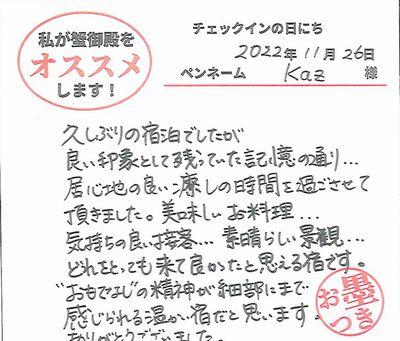 私が蟹御殿を
オススメ
します！
チェックインの日にち
2022年11月26日
ペンネーム Kaz 様
久しぶりの宿泊でしたが
良い印象として残っていた記憶の通り...
居心地の良い癒しの時間を過ごさせて
頂きました。美味しいお料理...
気持ちの良い接客... 素晴らしい景観...
どれをとっても来て良かったと思える宿です。
"おもてなし"の精神が細部にまで
感じられる温かい宿だと思います。
ありがとうございました。
お墨つき